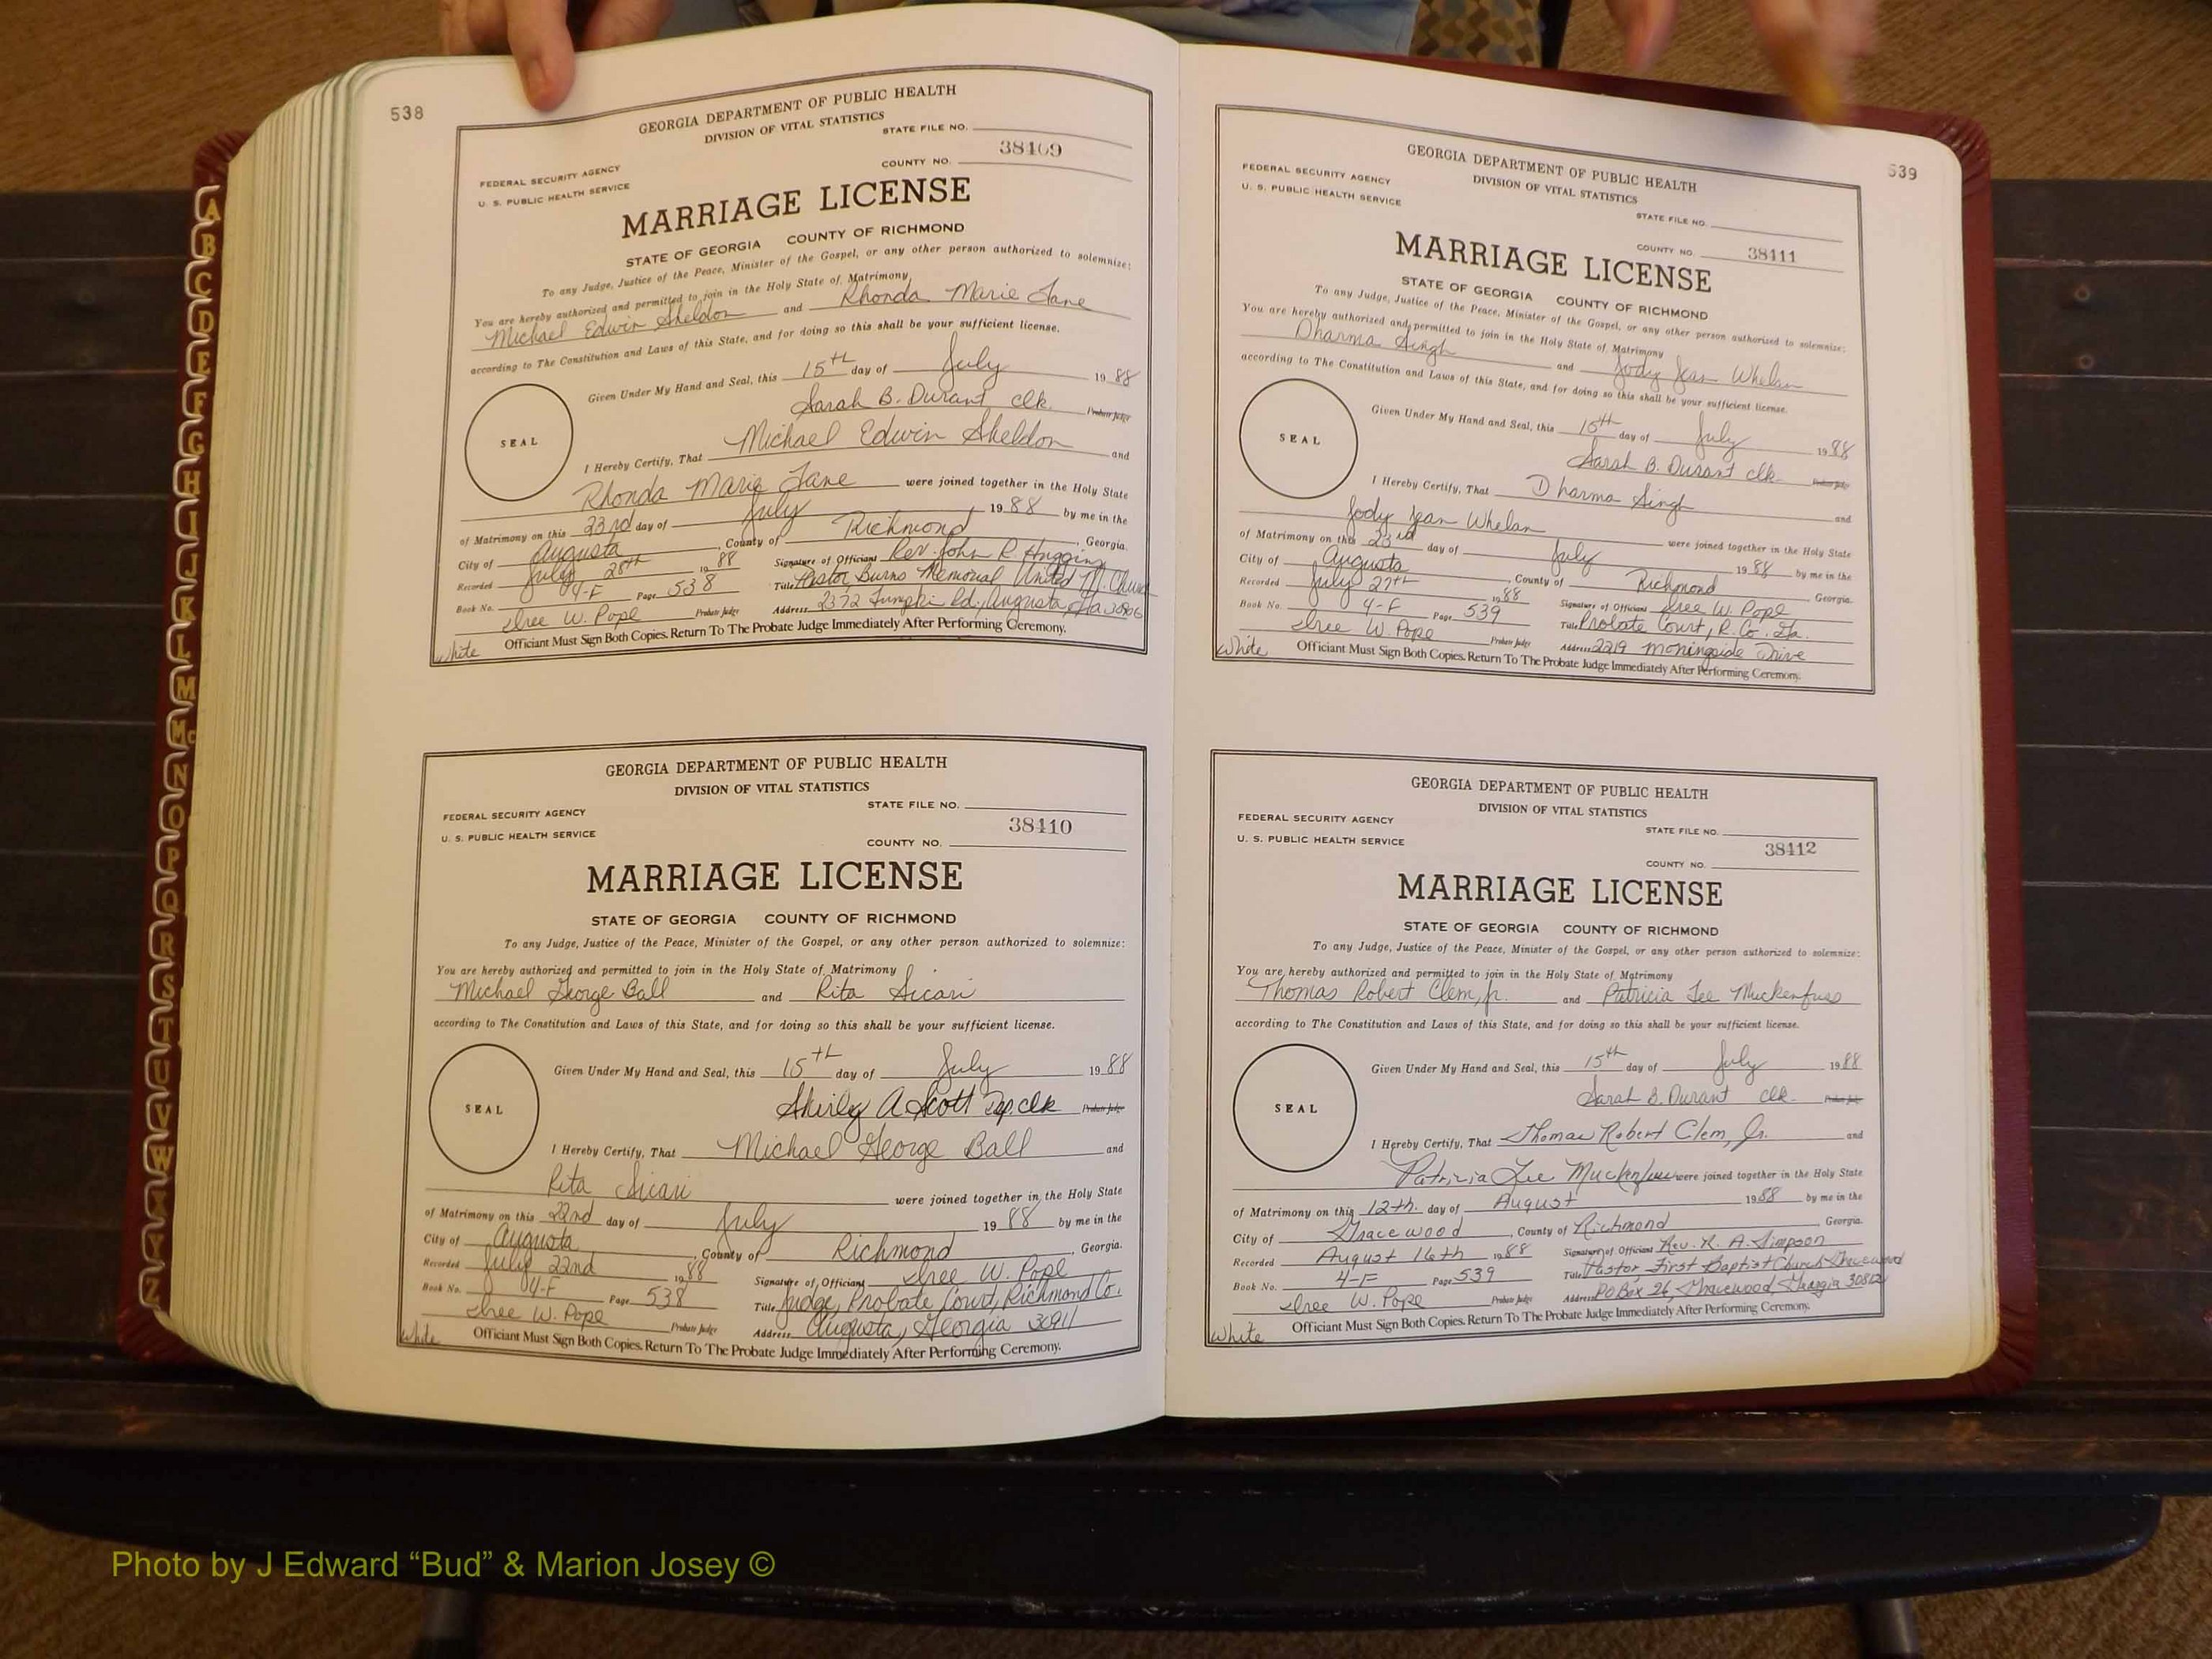 538
GEORGIA DEPARTMENT OF PUBLIC HEALTH
DIVISION OF VITAL STATISTICS
STATE FILE NO.
38409
FEDERAL SECURITY AGENCY
COUNTY NO.
U. S. PUBLIC HEALTH SERVICE
MARRIAGE LICENSE
STATE OF GEORGIA COUNTY OF RICHMOND
To any Judge, Justice of the Peace, Minister of the Gospel, or any other person authorized to solemnize:
You are hereby authorized and permitted to join in the Holy State of Matrimony
Michael Edwin Sheldon and Rhonda Marie Lane
according to The Constitution and Laws of this State, and for doing so this shall be your sufficient license.
Given Under My Hand and Seal, this 15th day of July 1988
Sarah B. Durant clk. Probate Judge
SEAL
I Hereby Certify, That Michael Edwin Sheldon and
Rhonda Marie Lane were joined together in the Holy State
of Matrimony on this 23rd day of July 1988 by me in the
City of Augusta, County of Richmond, Georgia.
Recorded July 28th 1988 Signature of Officiant Rev. John R. Huggins
Book No. 4-F Page 538 Title Pastor, Burns Memorial United M. Church
Sree W. Pope Probate Judge Address 2372 Rd., Augusta, Ga
Officiant Must Sign Both Copies. Return To The Probate Judge Immediately After Performing Ceremony.
White
GEORGIA DEPARTMENT OF PUBLIC HEALTH
DIVISION OF VITAL STATISTICS
STATE FILE NO.
FEDERAL SECURITY AGENCY
38410
U. S. PUBLIC HEALTH SERVICE
COUNTY NO.
MARRIAGE LICENSE
STATE OF GEORGIA COUNTY OF RICHMOND
To any Judge, Justice of the Peace, Minister of the Gospel, or any other person authorized to solemnize:
You are hereby authorized and permitted to join in the Holy State of Matrimony
Michael George Ball and Rita Sicari
according to The Constitution and Laws of this State, and for doing so this shall be your sufficient license.
Given Under My Hand and Seal, this 15th day of July 1988
Shirley A Scott Dep. clk Probate Judge
SEAL
I Hereby Certify, That Michael George Ball and
Rita Sicari were joined together in the Holy State
of Matrimony on this 22nd day of July 1988 by me in the
City of Augusta, County of Richmond, Georgia.
Recorded July 22nd 1988 Signature of Officiant Sree W. Pope
Book No. 4-F Page 538 Title Judge, Probate Court, Richmond Co.
Sree W. Pope Probate Judge Address Augusta, Georgia 30911
Officiant Must Sign Both Copies. Return To The Probate Judge Immediately After Performing Ceremony.
White
539
GEORGIA DEPARTMENT OF PUBLIC HEALTH
DIVISION OF VITAL STATISTICS
FEDERAL SECURITY AGENCY
U. S. PUBLIC HEALTH SERVICE
STATE FILE NO.
COUNTY NO. 38411
MARRIAGE LICENSE
STATE OF GEORGIA COUNTY OF RICHMOND
To any Judge, Justice of the Peace, Minister of the Gospel, or any other person authorized to solemnize:
You are hereby authorized and permitted to join in the Holy State of Matrimony
Dharma Singh and Jody Jean Whelan
according to The Constitution and Laws of this State, and for doing so this shall be your sufficient license.
Given Under My Hand and Seal, this 15th day of July 1988
Sarah B. Durant clk. Probate Judge
SEAL
I Hereby Certify, That Dharma Singh and
Jody Jean Whelan were joined together in the Holy State
of Matrimony on this 23rd day of July 1988 by me in the
City of Augusta, County of Richmond Georgia.
Recorded July 27th 1988 Signature of Officiant Sree W. Pope
Book No. 4-F Page 539 Title Probate Court, R. Co. Ga.
Sree W. Pope Probate Judge Address 2219 Morningside Drive
Officiant Must Sign Both Copies. Return To The Probate Judge Immediately After Performing Ceremony.
White
GEORGIA DEPARTMENT OF PUBLIC HEALTH
DIVISION OF VITAL STATISTICS
FEDERAL SECURITY AGENCY
STATE FILE NO.
U. S. PUBLIC HEALTH SERVICE
38412
COUNTY NO.
MARRIAGE LICENSE
STATE OF GEORGIA COUNTY OF RICHMOND
To any Judge, Justice of the Peace, Minister of the Gospel, or any other person authorized to solemnize:
You are hereby authorized and permitted to join in the Holy State of Matrimony
Thomas Robert Clem, Jr. and Patricia Lee Muckenfuss
according to The Constitution and Laws of this State, and for doing so this shall be your sufficient license.
Given Under My Hand and Seal, this 15th day of July 1988
Sarah B. Durant clk. Probate Judge
SEAL
I Hereby Certify, That Thomas Robert Clem, Jr. and
Patricia Lee Muckenfuss were joined together in the Holy State
of Matrimony on this 12th. day of August 1988 by me in the
City of Gracewood, County of Richmond Georgia.
Recorded August 16th 1988 Signature of Officiant Rev. R. A. Simpson
Book No. 4-F Page 539 Title Pastor First Baptist Church Gracewood
Sree W. Pope Probate Judge Address PO Box 26, Gracewood, Georgia 30812
Officiant Must Sign Both Copies. Return To The Probate Judge Immediately After Performing Ceremony.
White
A
B
C
D
E
F
G
H
I
J
K
L
M
Mc
N
O
P
Q
R
S
T
U
V
W
X
Y
Z
Photo by J Edward “Bud” & Marion Josey ©